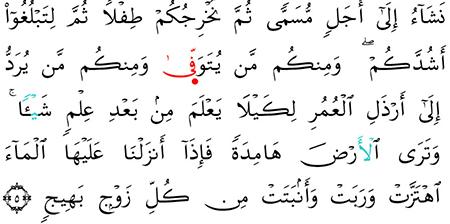 نَشَآءُ إِلَىٰٓ أَجَلٍ مُّسَمًّى ثُمَّ نُخْرِجُكُمْ طِفْلًا ثُمَّ لِتَبْلُغُوٓا۟
أَشُدَّكُمْ ۖ وَمِنكُم مَّن يُتَوَفَّىٰ وَمِنكُم مَّن يُرَدُّ
إِلَىٰٓ أَرْذَلِ ٱلْعُمُرِ لِكَيْلَا يَعْلَمَ مِنۢ بَعْدِ عِلْمٍ شَيْـًٔا ۚ
وَتَرَى ٱلْأَرْضَ هَامِدَةً فَإِذَآ أَنزَلْنَا عَلَيْهَا ٱلْمَآءَ
ٱهْتَزَّتْ وَرَبَتْ وَأَنۢبَتَتْ مِن كُلِّ زَوْجٍۭ بَهِيجٍ ۝٥